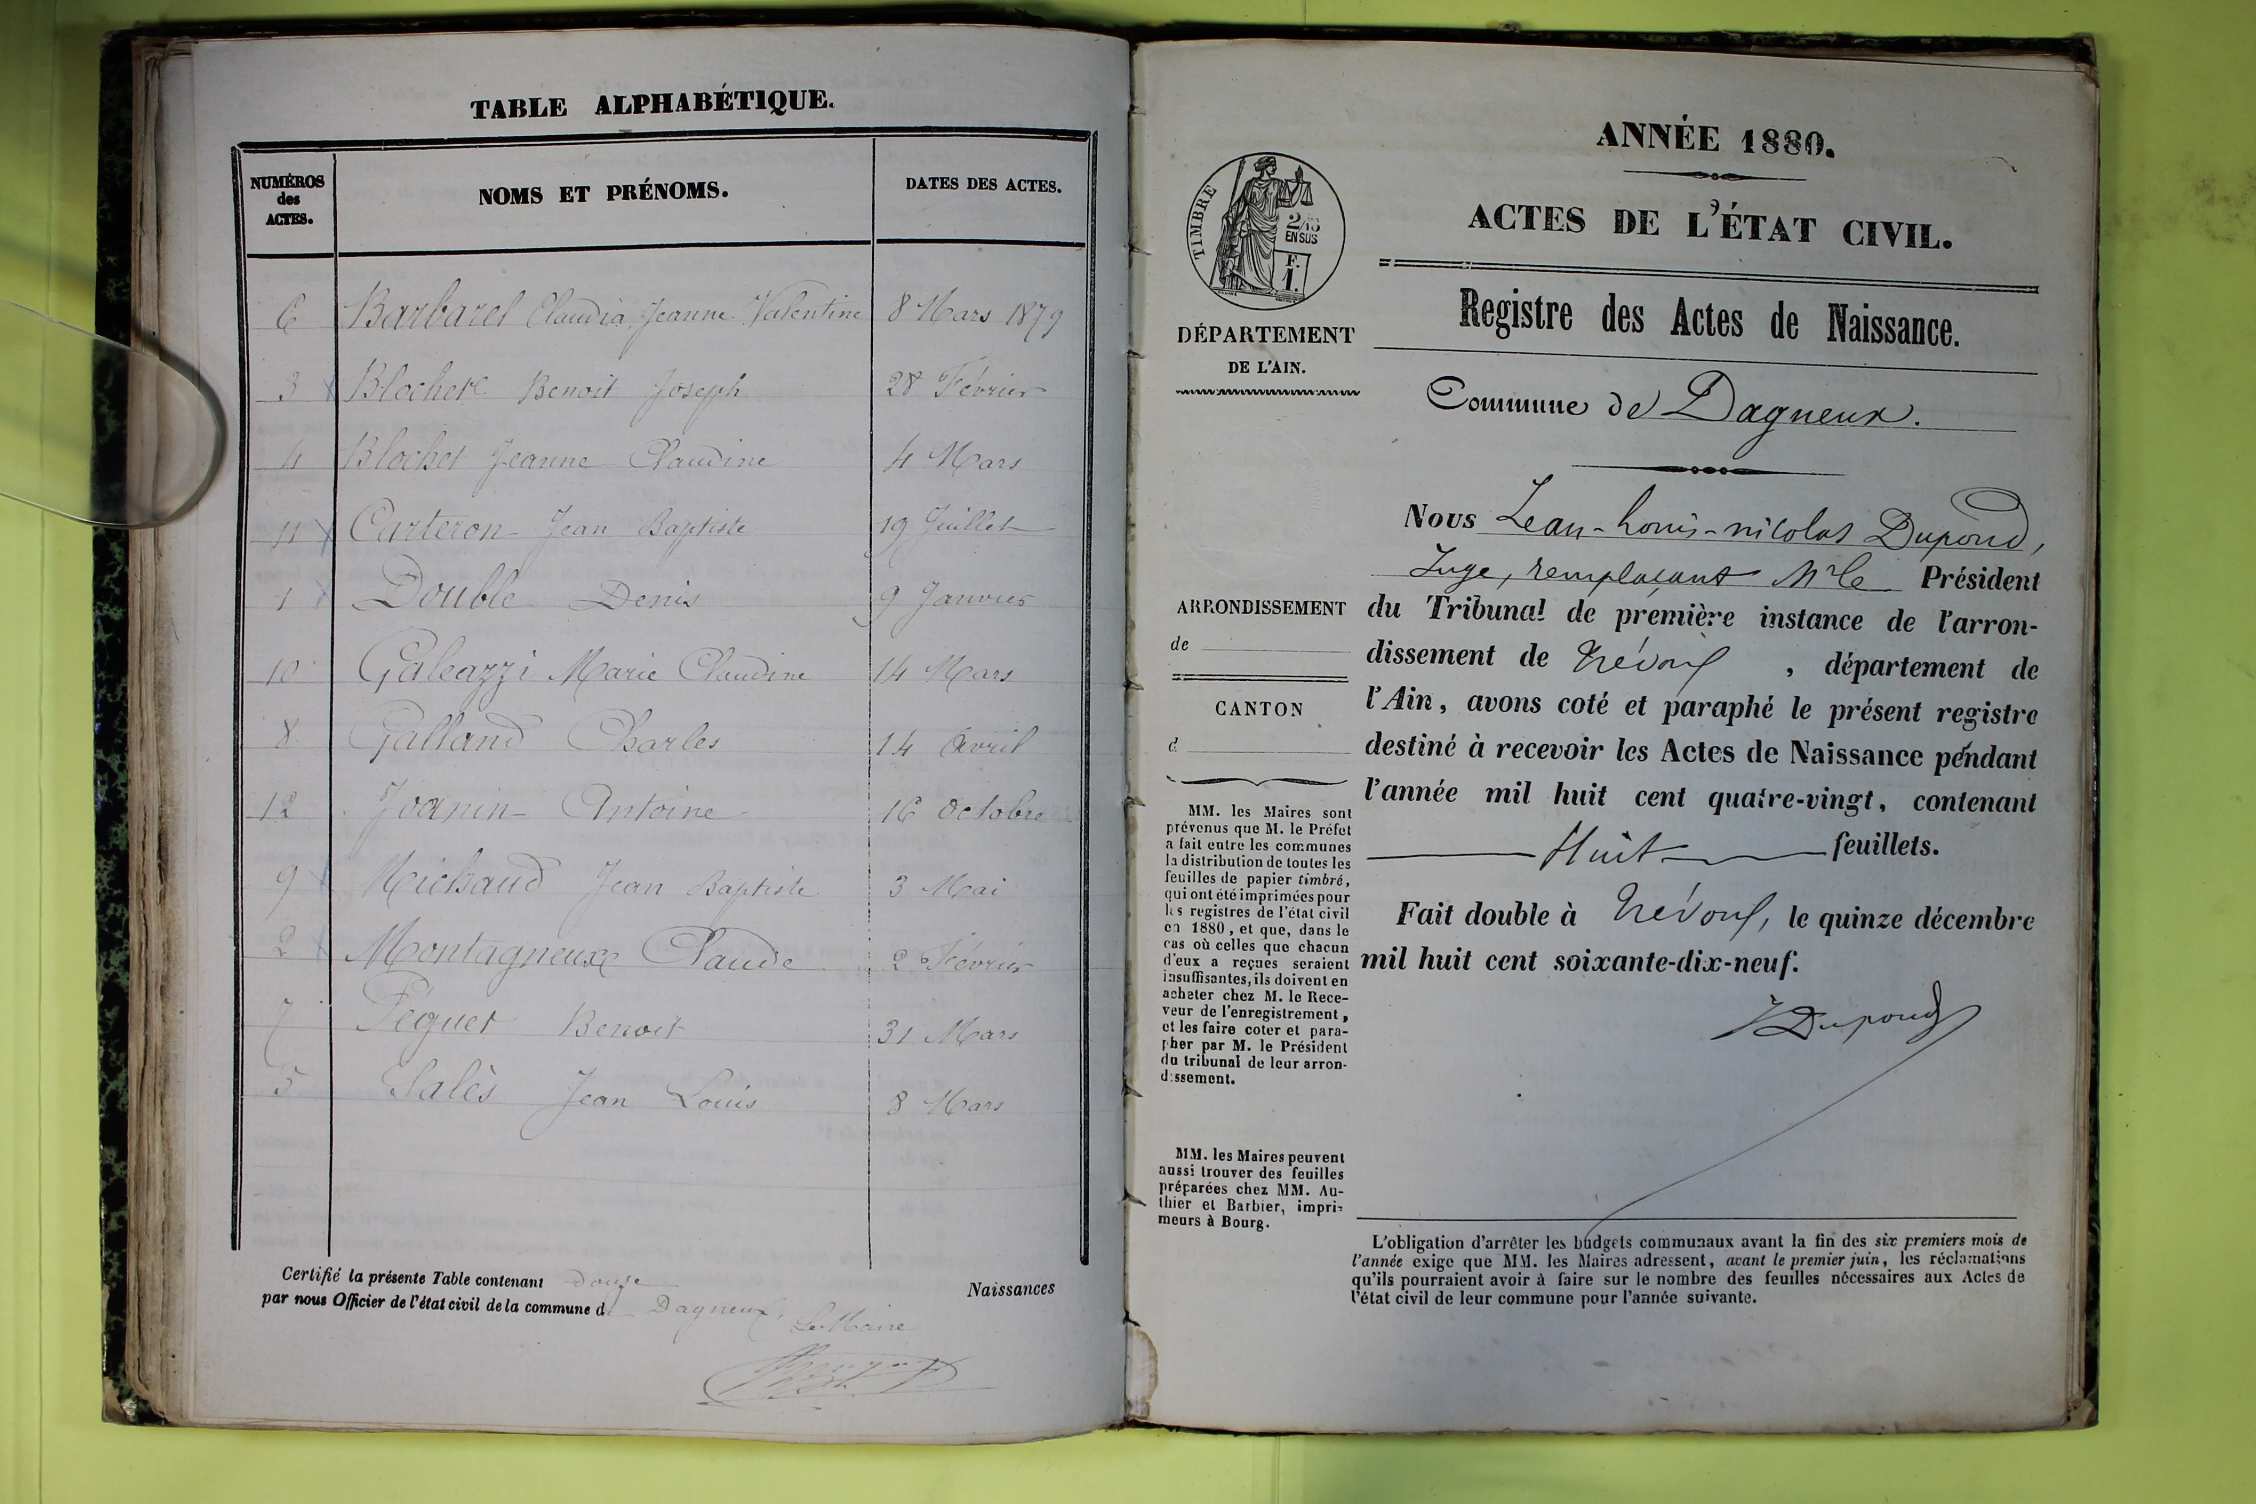 TABLE ALPHABÉTIQUE.
NUMÉROS des ACTES. NOMS ET PRÉNOMS. DATES DES ACTES.
6 Barbarel Claudia Jeanne Valentine 8 Mars 1879
3 Blochet Benoit Joseph 28 Février
4 Blochet Jeanne Claudine 4 Mars
11 Carteron Jean Baptiste 19 Juillet
1 Double Denis 9 Janvier
10 Galeazzi Marie Claudine 14 Mars
8 Galland Charles 14 Avril
12 Joanin Antoine 16 Octobre
9 Michaud Jean Baptiste 3 Mai
2 Montagneux Claude 2 Février
7 Péguet Benoit 31 Mars
5 Salès Jean Louis 8 Mars
Certifié la présente Table contenant douze Naissances
par nous Officier de l'état civil de la commune de Dagneux
Le Maire
ANNÉE 1880.
ACTES DE L'ÉTAT CIVIL.
TIMBRE
2/10
EN SUS
F.
1.
DÉPARTEMENT
DE L'AIN.
Registre des Actes de Naissance.
Commune de Dagneux.
Nous Jean-Louis-nicolas Dupond,
Juge, remplaçant Mr le Président
du Tribunal de première instance de l'arron-
dissement de Trévoux, département de
l'Ain, avons coté et paraphé le présent registre
destiné à recevoir les Actes de Naissance pendant
l'année mil huit cent quatre-vingt, contenant
Huit feuillets.
Fait double à Trévoux, le quinze décembre
mil huit cent soixante-dix-neuf.
Dupond
ARRONDISSEMENT
de
CANTON
d
MM. les Maires sont
prévenus que M. le Préfet
a fait entre les communes
la distribution de toutes les
feuilles de papier timbré,
qui ont été imprimées pour
les registres de l'état civil
en 1880, et que, dans le
cas où celles que chacun
d'eux a reçues seraient
insuffisantes, ils doivent en
acheter chez M. le Rece-
veur de l'enregistrement,
et les faire coter et para-
pher par M. le Président
du tribunal de leur arron-
dissement.
MM. les Maires peuvent
aussi trouver des feuilles
préparées chez MM. Au-
thier et Barbier, impri-
meurs à Bourg.
L'obligation d'arrêter les budgets communaux avant la fin des six premiers mois de
l'année exige que MM. les Maires adressent, avant le premier juin, les réclamations
qu'ils pourraient avoir à faire sur le nombre des feuilles nécessaires aux Actes de
l'état civil de leur commune pour l'année suivante.